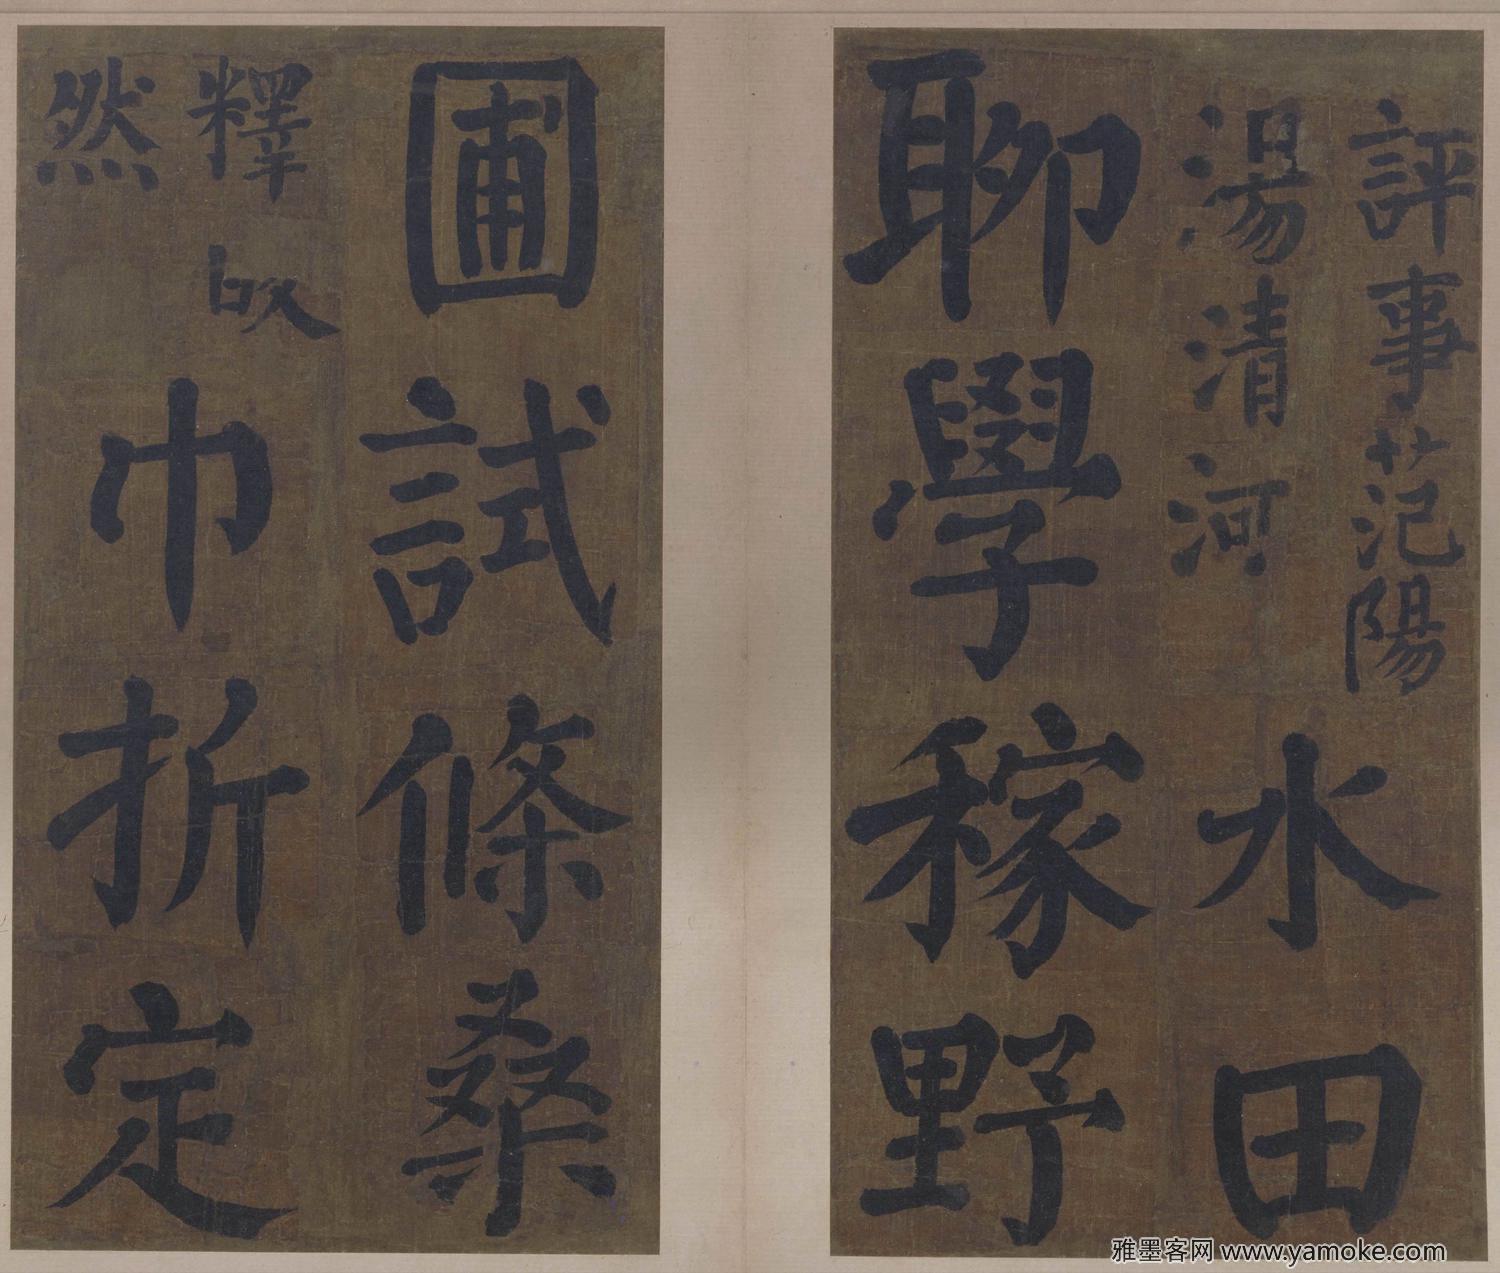 評事范陽
湯清河
水田
聊學稼野
圃試條桑
釋皎
然
巾折定
雅墨客网 www.yamoke.com